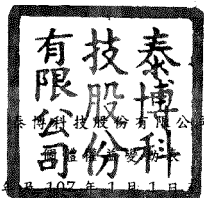 泰博科
技股份
有限公司
泰博科技股份有限公司
及 107 年 1 月 1 日